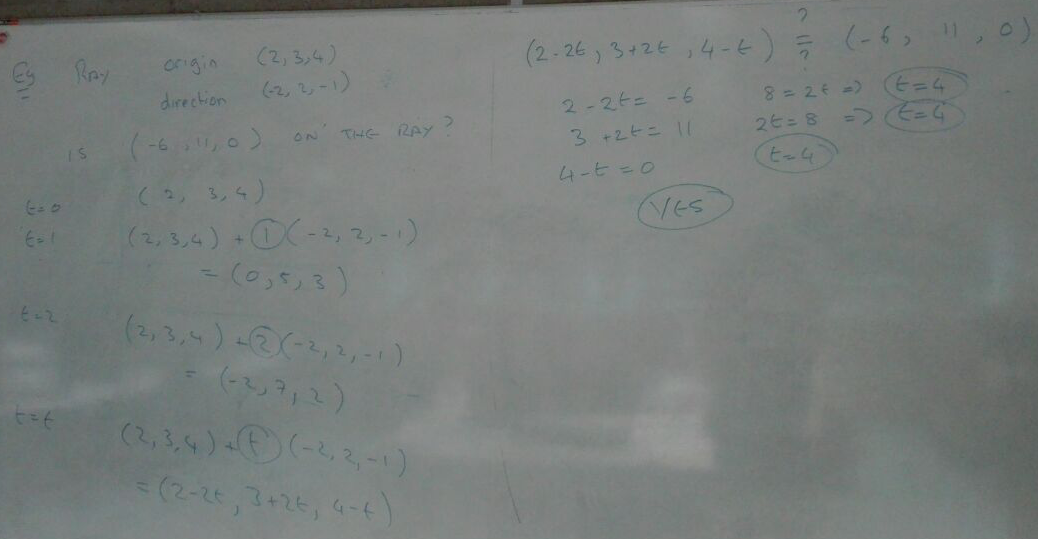 Eg Ray origin (2,3,4)
direction (-2, 2, -1)
is (-6, 11, 0) ON THE RAY?
t=0 (2, 3, 4)
t=1 (2,3,4) + 1(-2, 2, -1)
= (0, 5, 3)
t=2 (2,3,4) + 2(-2, 2, -1)
= (-2, 7, 2)
t=t (2,3,4) + t(-2, 2, -1)
= (2-2t, 3+2t, 4-t)
?
(2-2t, 3+2t, 4-t) = (-6, 11, 0)
?
2-2t = -6 8=2t => t=4
3+2t = 11 2t=8 => t=4
4-t=0 t=4
YES